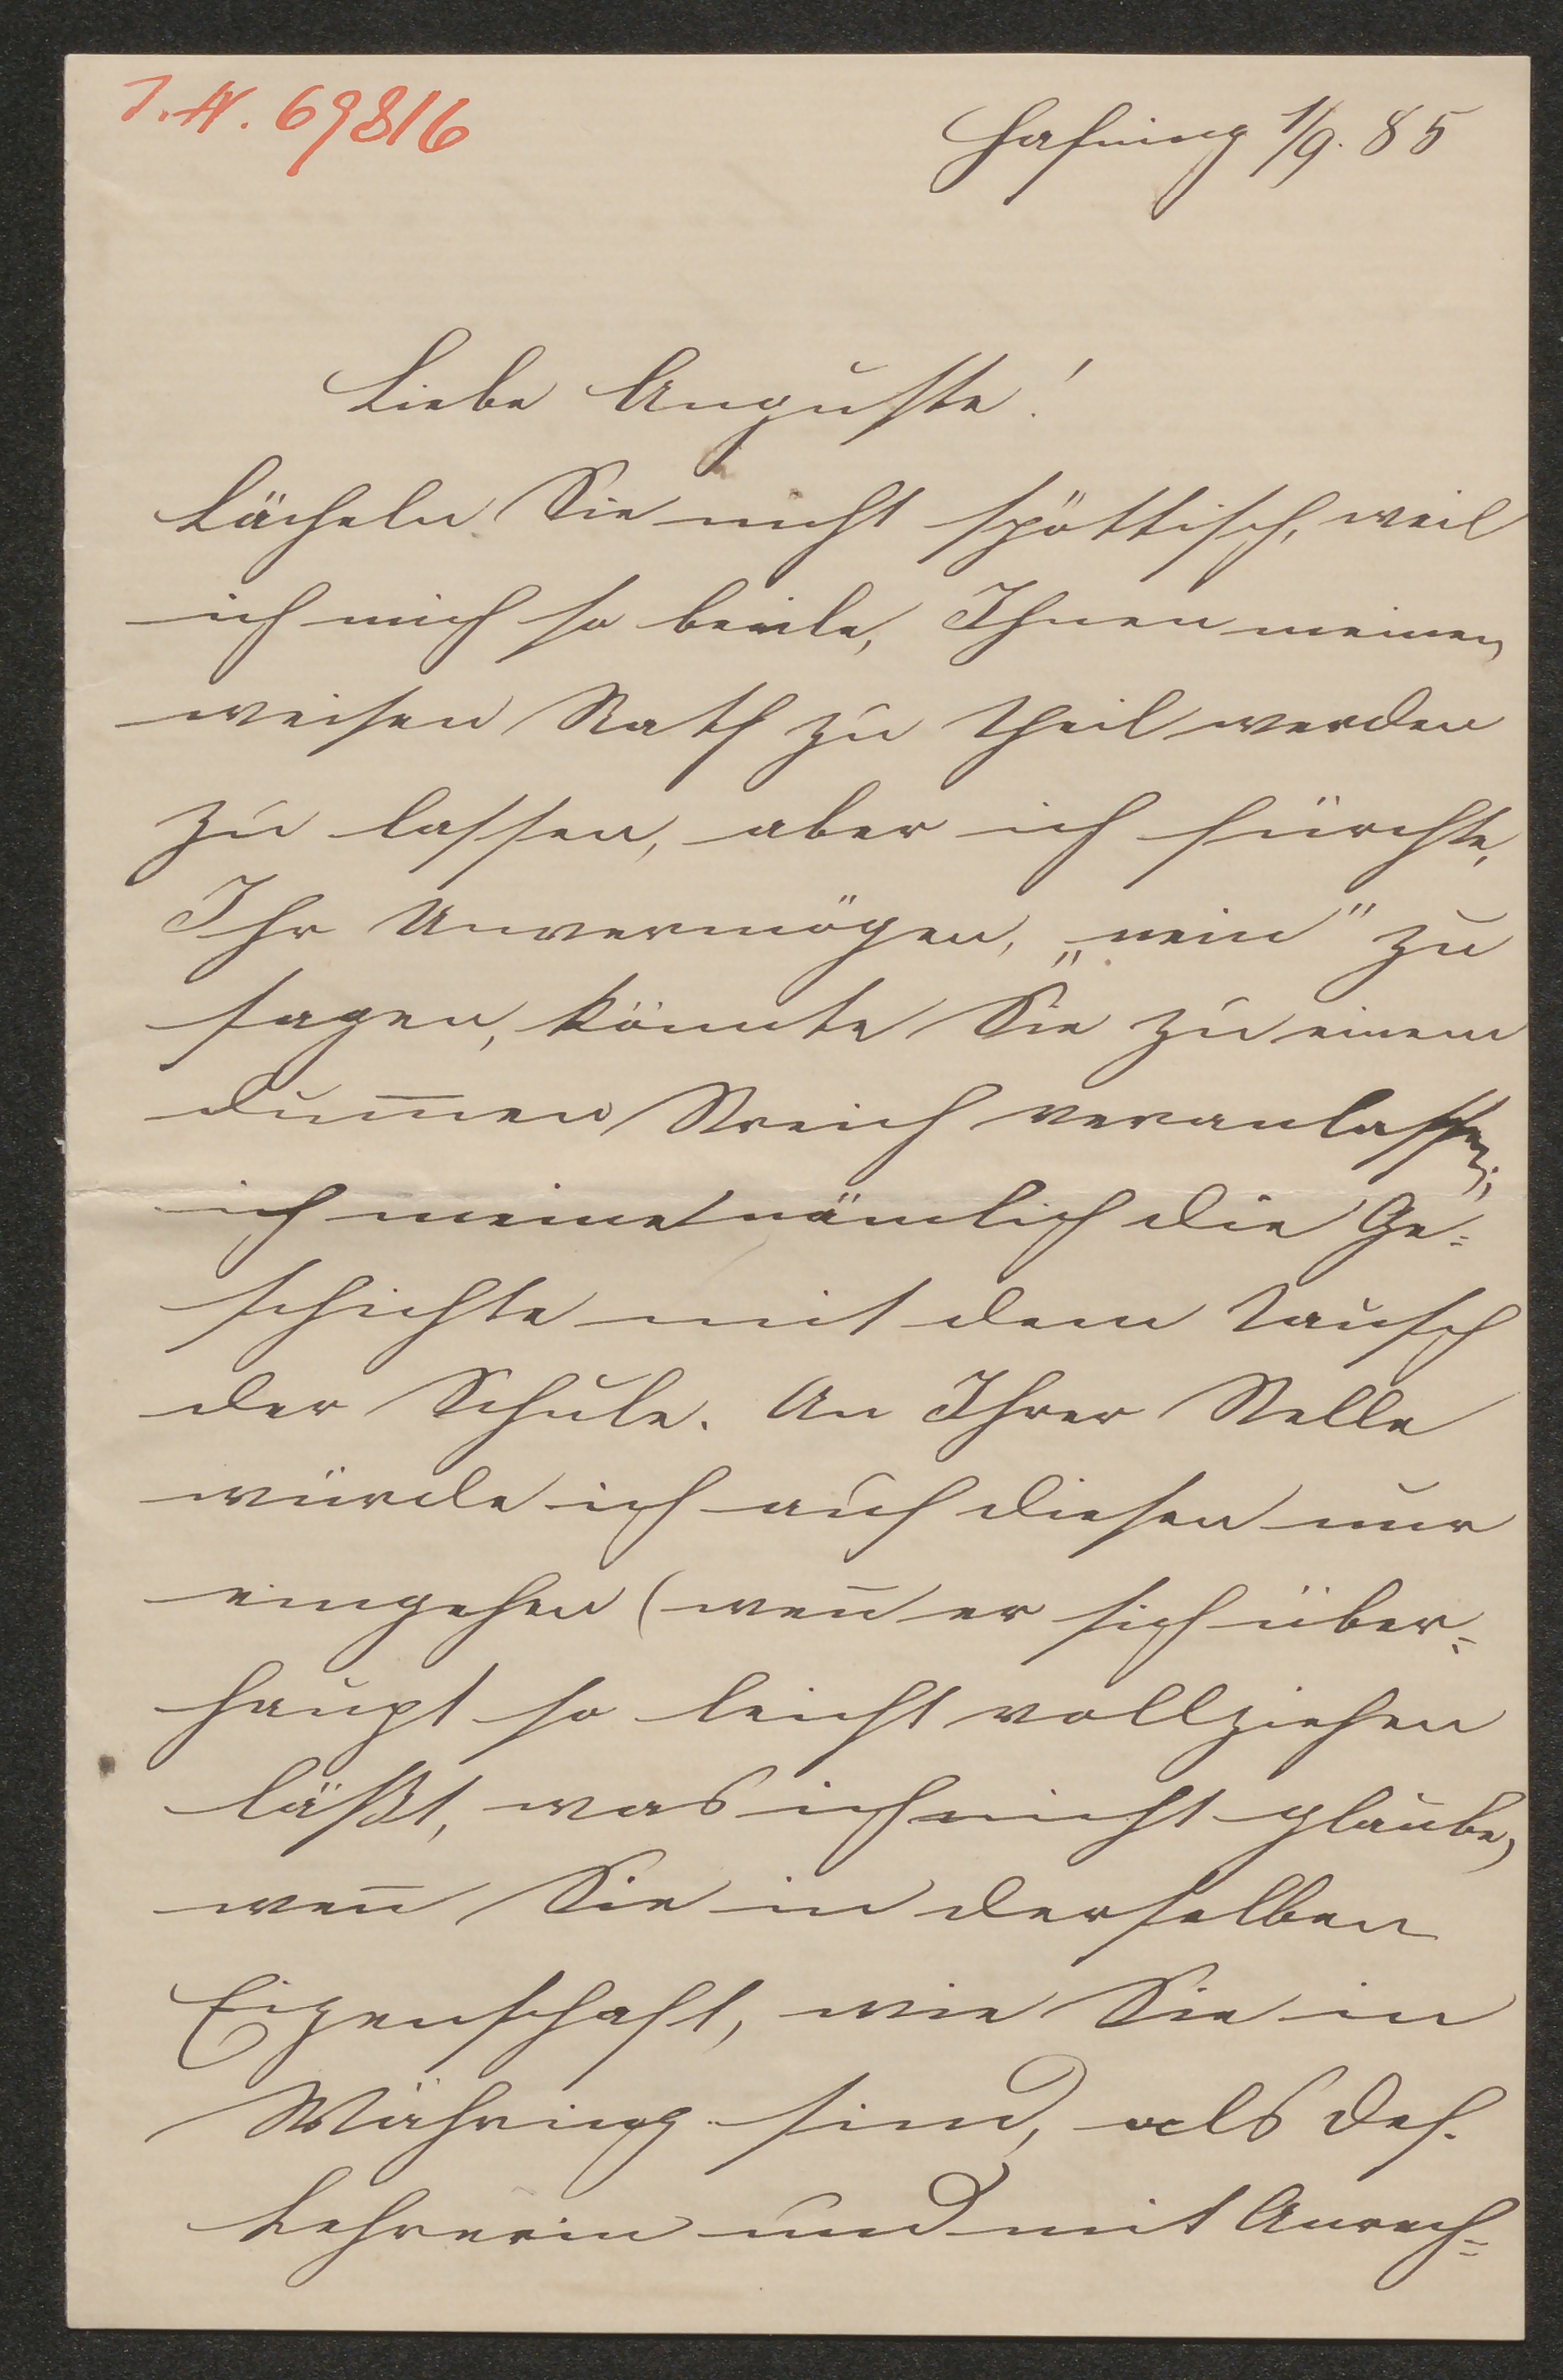 I.N. 69816
Hafning 1/9. 85
Liebe Auguste!
Lächeln Sie nicht spöttisch, weil
ich mich so beeile, Ihnen meinen
weisen Rath zu theil werden
zu lassen, aber ich fürchte,
Ihr Unvermögen, „nein" zu
sagen, könnte Sie zu einem
dum̅en Streich veranlassen;
ich meine nämlich die Ge=
schichte mit dem Tausch
der Schule. An Ihrer Stelle
würde ich auf diesen nur
eingehen (wen̅ er sich über=
haupt so leicht vollziehen
läßt, was ich nicht glaube,
wen̅ Sie in derselben
Eigenschaft, wie Sie in
Währing sind, als def.
Lehrerin und mit Anrech=